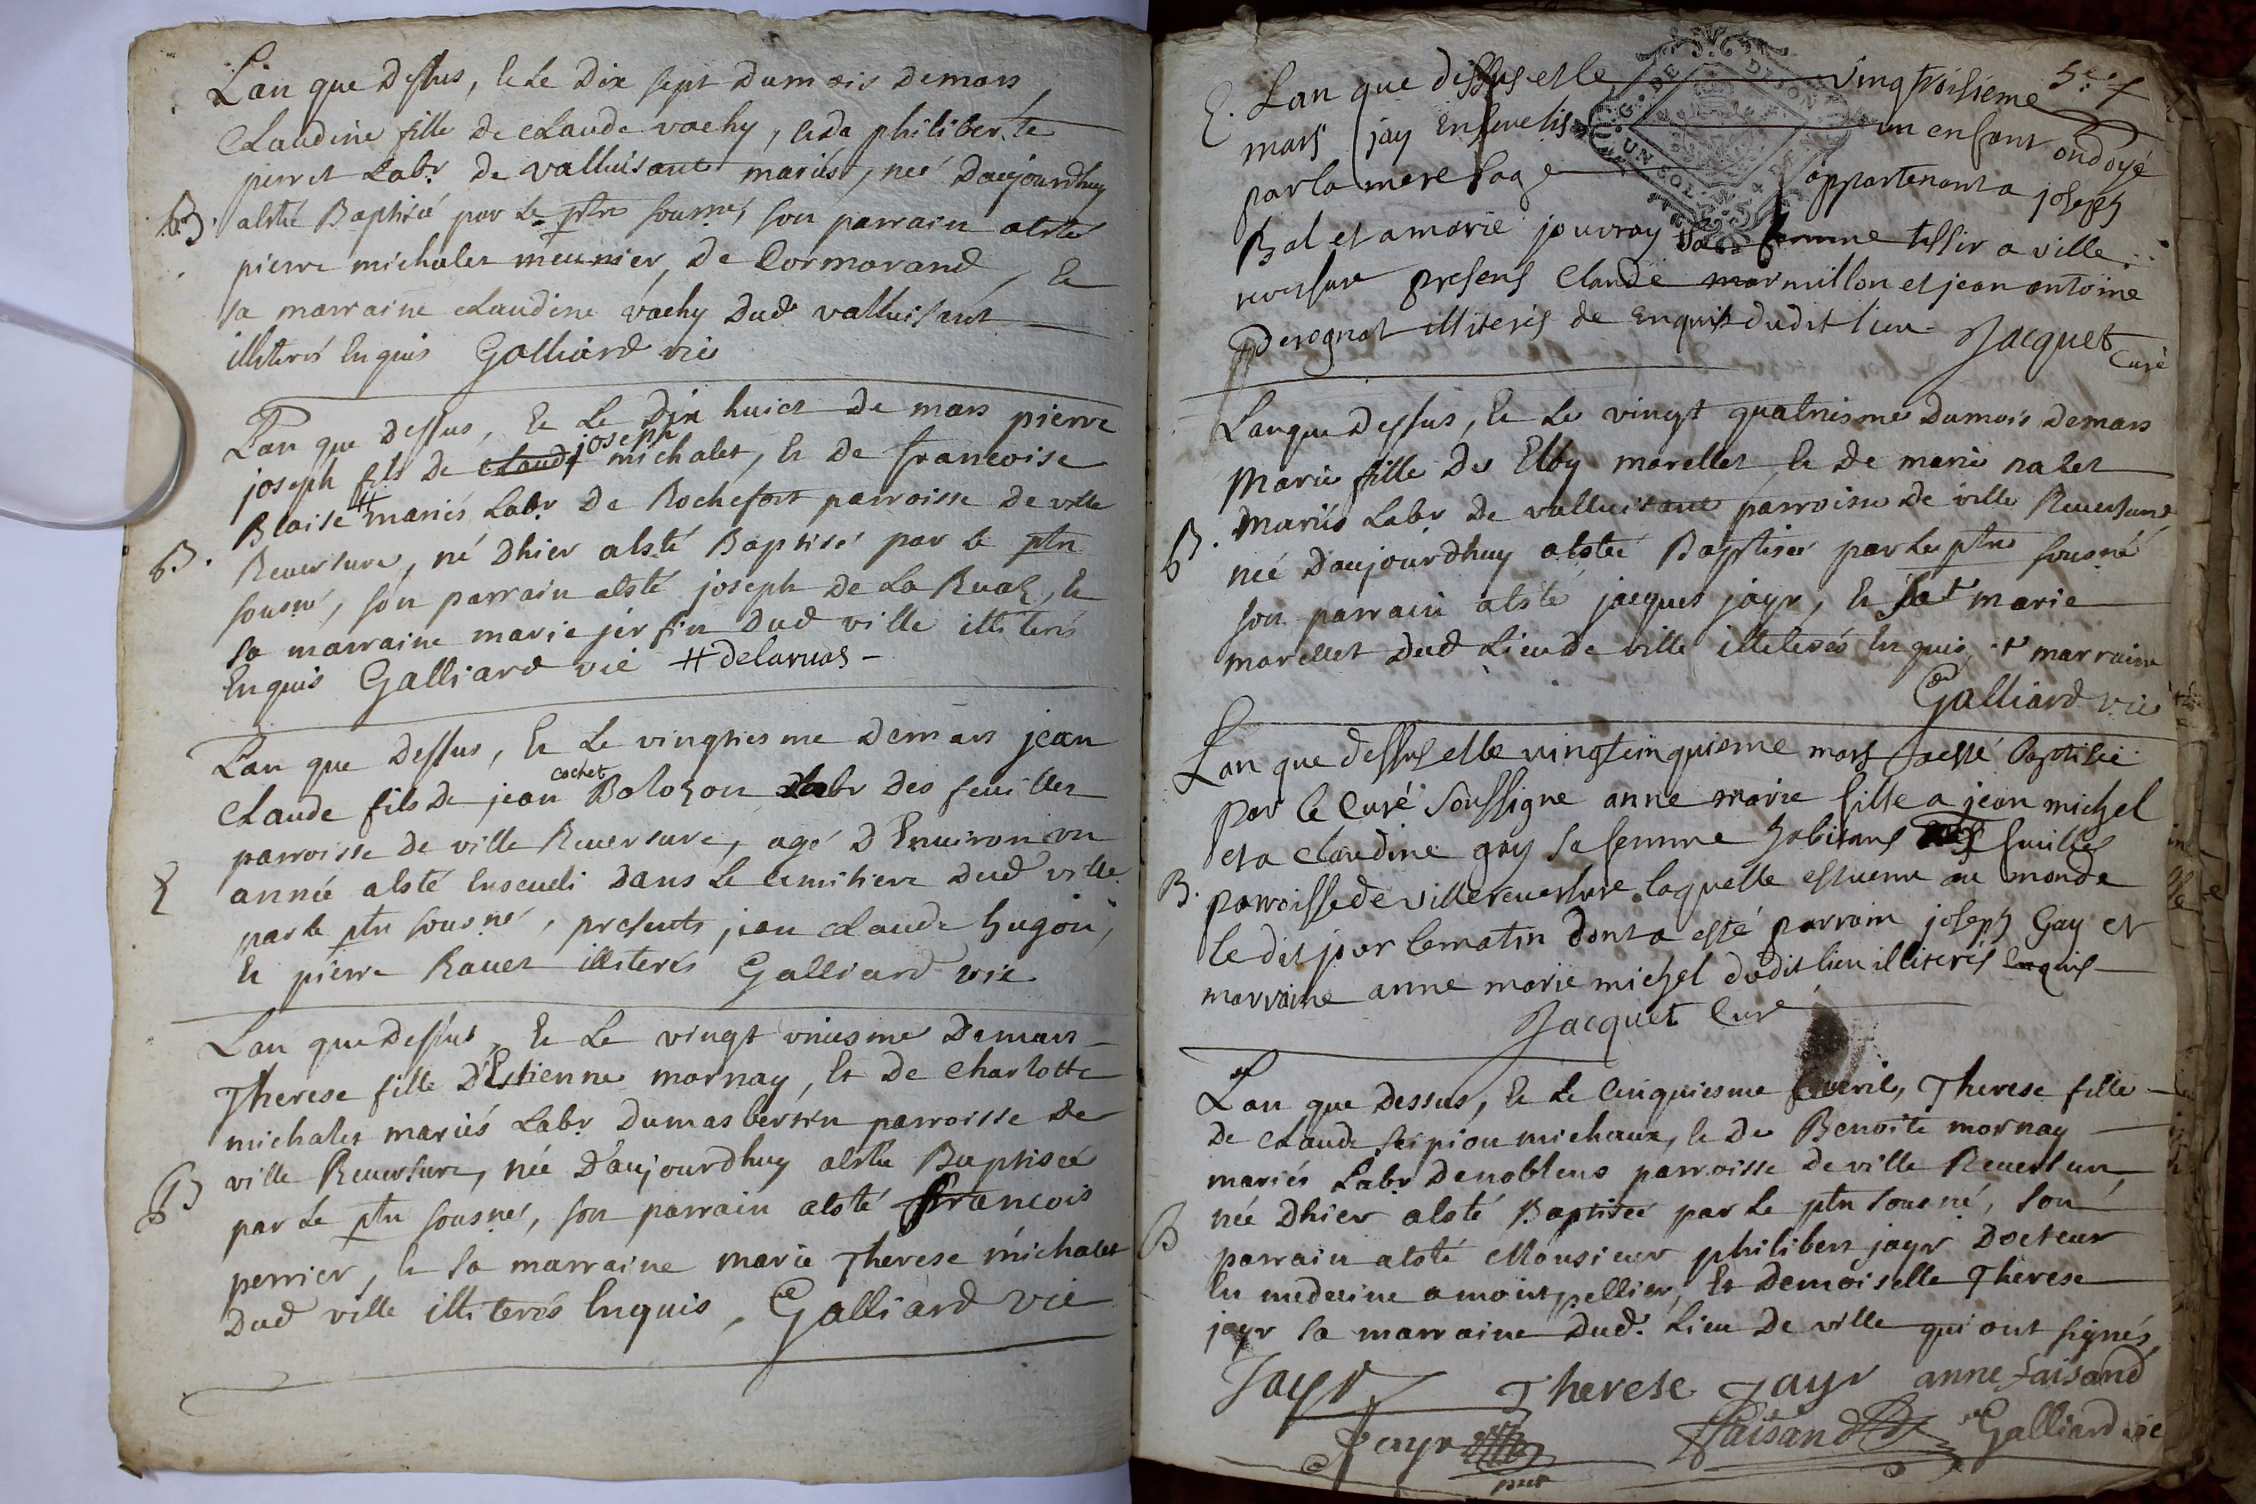 L'an que Dessus, & Le Dix sept Du mois De mars
Claudine fille de Claude vachy, & da philiberte
perret Labr. de valluisant mariés, neé Daujourdhuy
B. alsté Baptiseé par Le ptre sousné, son parrain alsté
pierre michalet meunier De Cormorand, &
sa marraine claudine vachy Dud valluisant
illiterés Enquis Galliard vic
L'an que Dessus, & Le Dix huict De mars pierre
joseph
joseph fils De Claude michalet, & De francoise
Blaise # mariés Labr De Rochefort parroisse De ville
B. Reversure, né Dhier alsté Baptisé par Le ptre
sousné, son parrain alsté joseph De La Ruaz, &
sa marraine marie jerfin Dud ville illiterés
Enquis Galliard vié # delaruas -
L'an que Dessus, & Le vingtiesme De mars jean
cochet
Claude fils De jean Bolozon Labr Des feuilles
parroisse De ville Reversure, agé D'Environ un
E année alsté Enseveli Dans Le cimitiere Dud ville
par Le ptre sousné, presents jean claude hugon,
& pierre Ravet illiterés Galliard vic
L'an que Dessus, & Le vingt uniesme De mars
Therese fille D'Estienne mornay, & De charlotte
michalet mariés Labr Dumasbertin parroisse De
B ville Reversure, née D'aujourdhuy alsté Baptiseé
par Le ptre sousné, son parrain alsté francois
perrier, & sa marraine marie Therese michalet
Dud ville illiterés Enquis, Galliard vic
E. L'an que dessus et le vingtroisieme 5e
mars jay Ensevelis un enfant ondoyé
par la mere sage appartenant a joseph
Bal et a marie jouvray sa femme tessir a ville
reversure presens Claude marmillon et jean antoine
derognat illiterés de Enquis dudit lieu - Jacquet
Curé
L'an que Dessus, & Le vingt quatriesme Du mois De mars
Marie fille De Elby morellet & De marie ralet
B. Mariés Labr De valluisant parroisse De ville Reversure
neé Daujourdhuy alsteé Baptiseé par Le ptre sousné
son parrain alsté jacques jayr, & sa + marie
morellet Dud Lieu De ville illiterés Enquis, + marraine
Galliard vic
L'an que dessus et le vingtcinquieme mars a esté Baptisée
par le Curé Soussigne anne marie fille a jean michel
et a Claudine gay sa femme habitans des feuilles
B. parroisse de villereversure laquelle est venu au monde
le dit jour le matin dont a esté parrain joseph Gay et
marraine anne marie michel dudit lieu illiterés Enquis
Jacquet Curé
L'an que Dessus, & Le Cinquiesme avril, Therese fille
De Claude scipion michaux, & De Benoite mornay
mariés Labr De noblens parroisse de ville Reversure,
B née Dhier alsté Baptiseé par Le ptre sousné, son
parrain alsté Monsieur philibert jayr Docteur
En medecine a montpellier, & Demoiselle Therese
jayr sa marraine Dud. Lieu De ville qui ont signés
Jayr Therese Jayr anne faisand
Jayr faisand Galliard vic